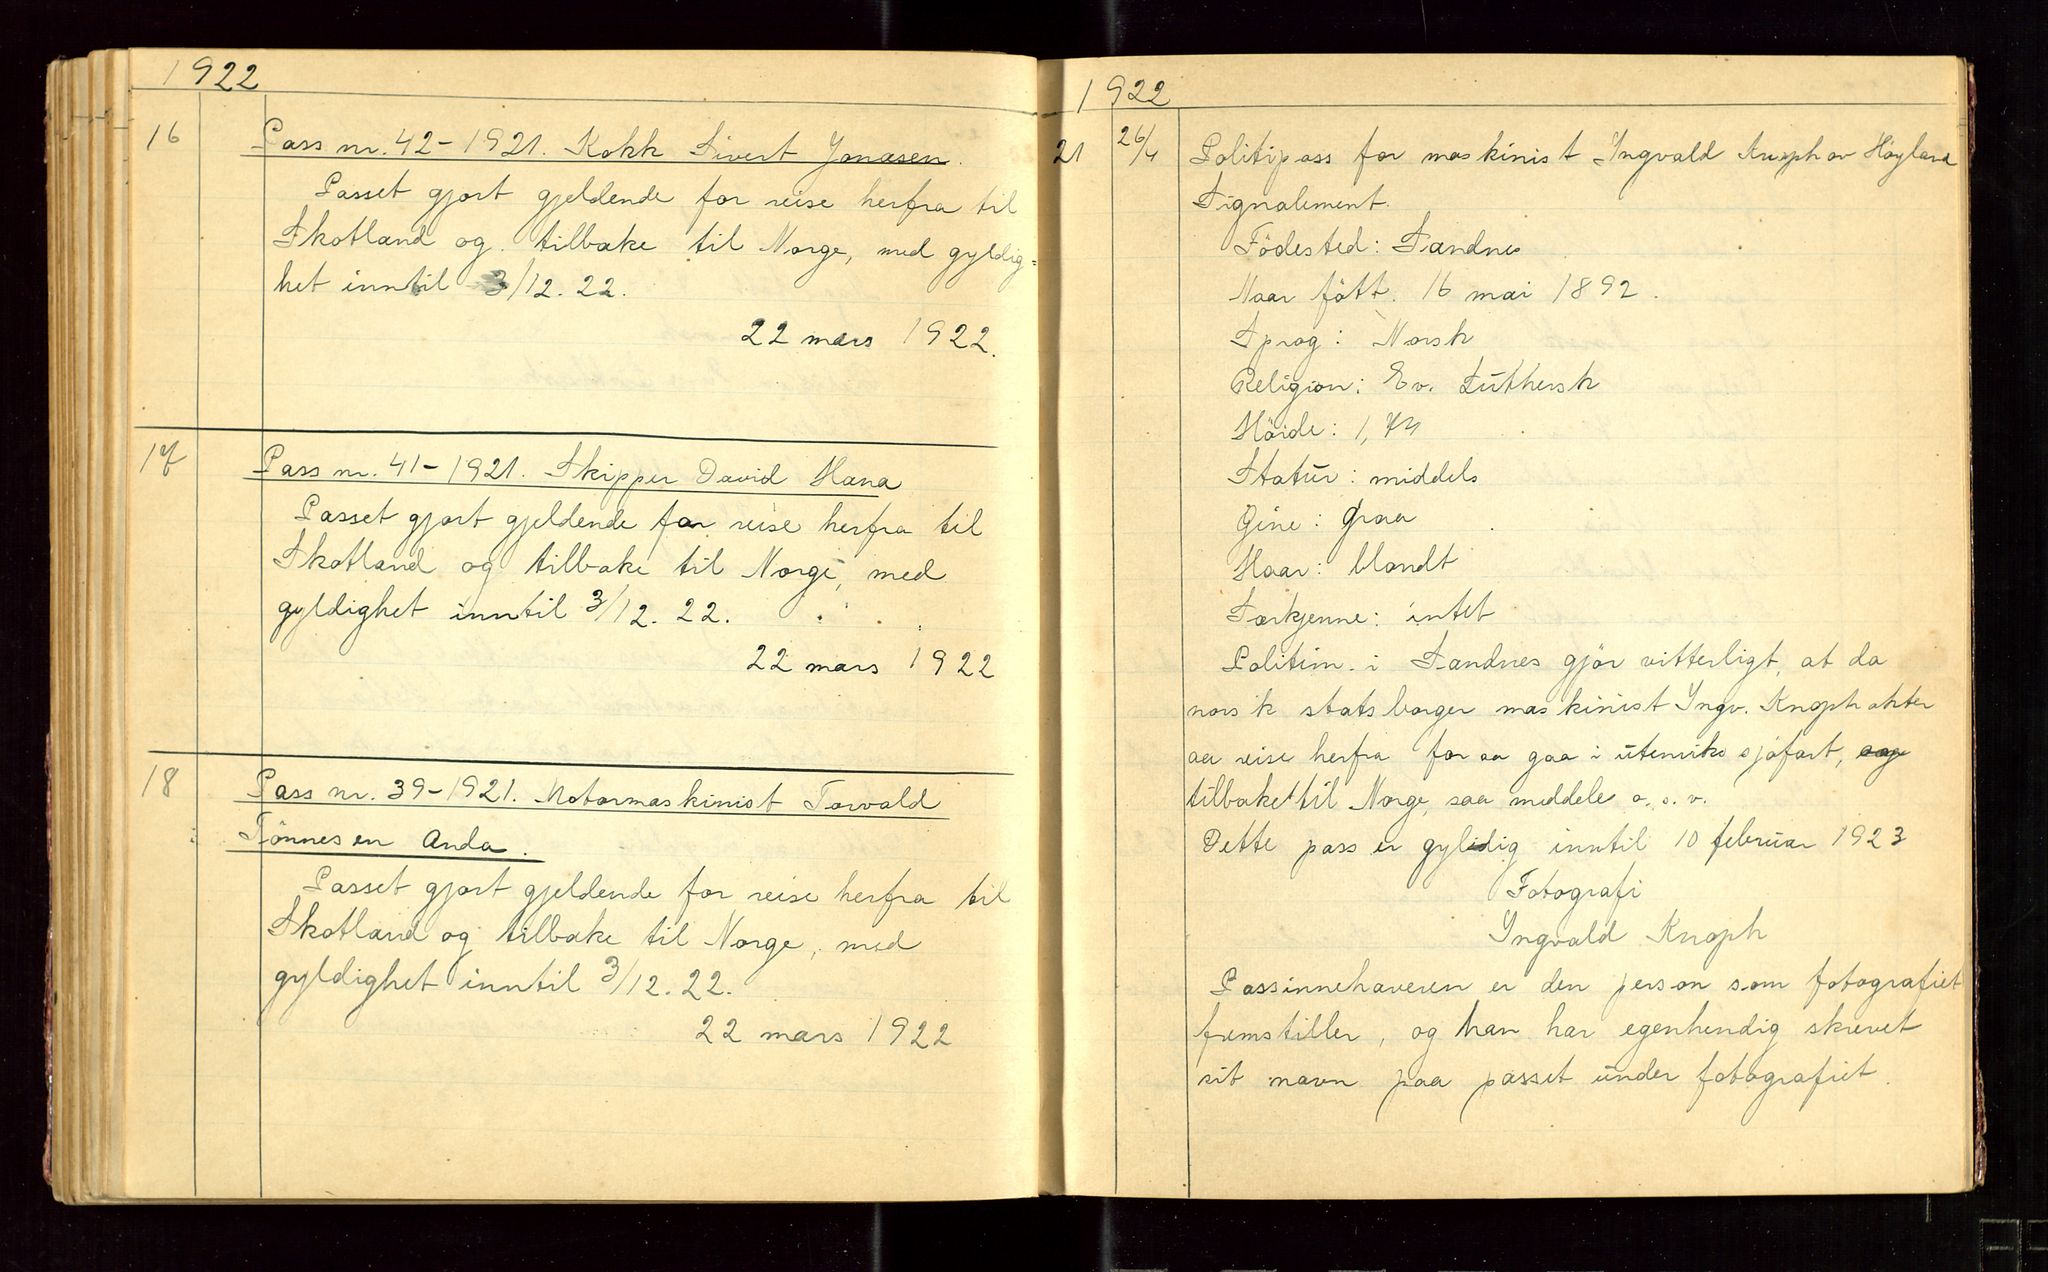 1922
16 Pass nr. 42-1921. Kokk Sivert Jonasen.
Passet gjort gjeldende for reise herfra til
Skotland og tilbake til Norge, med gyldig=
het inntil 3/12.22.
22 mars 1922.
17 Pass nr. 41-1921. Skipper David Hana
Passet gjort gjeldende for reise herfra til
Skotland og tilbake til Norge, med
gyldighet inntil 3/12.22.
22 mars 1922
18 Pass nr. 39-1921. Motormaskinist Torvald
Tönnesen Anda.
Passet gjort gjeldende for reise herfra til
Skotland og tilbake til Norge, med
gyldighet inntil 3/12.22.
22 mars 1922
1922
21 26/4 Politipass for maskinist Ingvald Knoph av Höyland
Signalement.
Födested: Sandnes
Naar fött: 16 mai 1892.
Sprog: Norsk
Religion: Ev. Luthersk
Höide: 1,74
Statur: middels
Öine: graa
Haar: blondt
Særkjenne: intet
Politim. i Sandnes gjör vitterligt, at da
norsk statsborger maskinist Ingv. Knoph akter
aa reise herfra for aa gaa i utenriks sjöfart,
tilbake til Norge, saa meddele o.s.v.
Dette pass er gyldig inntil 10 februar 1923
Fotografi
Ingvald Knoph
Passinnehaveren er den person som fotografiet
fremstiller, og han har egenhendig skrevet
sit navn paa passet under fotografiet.